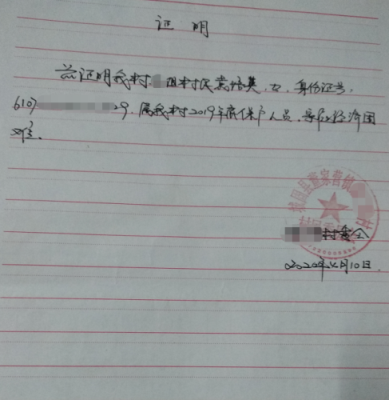 证明
兹证明我村 组村民 培英,女,身份证号,
6107 29,属我村2019年底低保户人员,家庭经济困
难。
村委会
2020年4月10日.